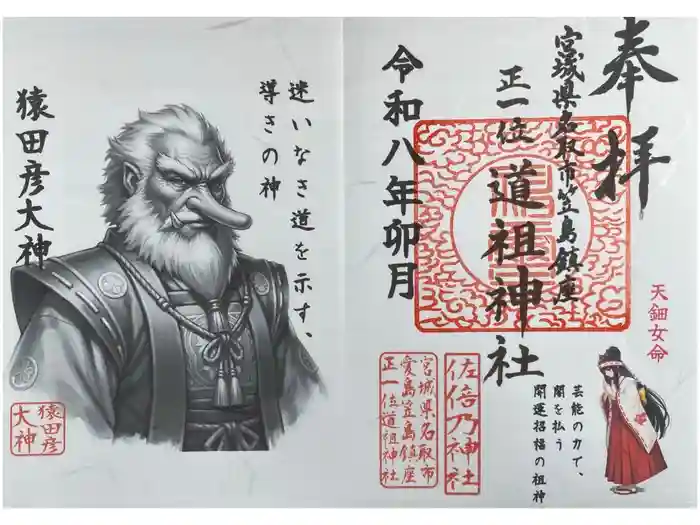 奉拝
宮城県名取市笠島鎮座
正一位
道祖神社
令和八年卯月
佐倍乃神社
宮城県名取市
愛島笠島鎮座
正一位道祖神社
天鈿女命
芸能の力で、
闇を払う
開運招福の祖神
迷いなき道を示す、
導きの神
猿田彦大神
猿田彦
大神